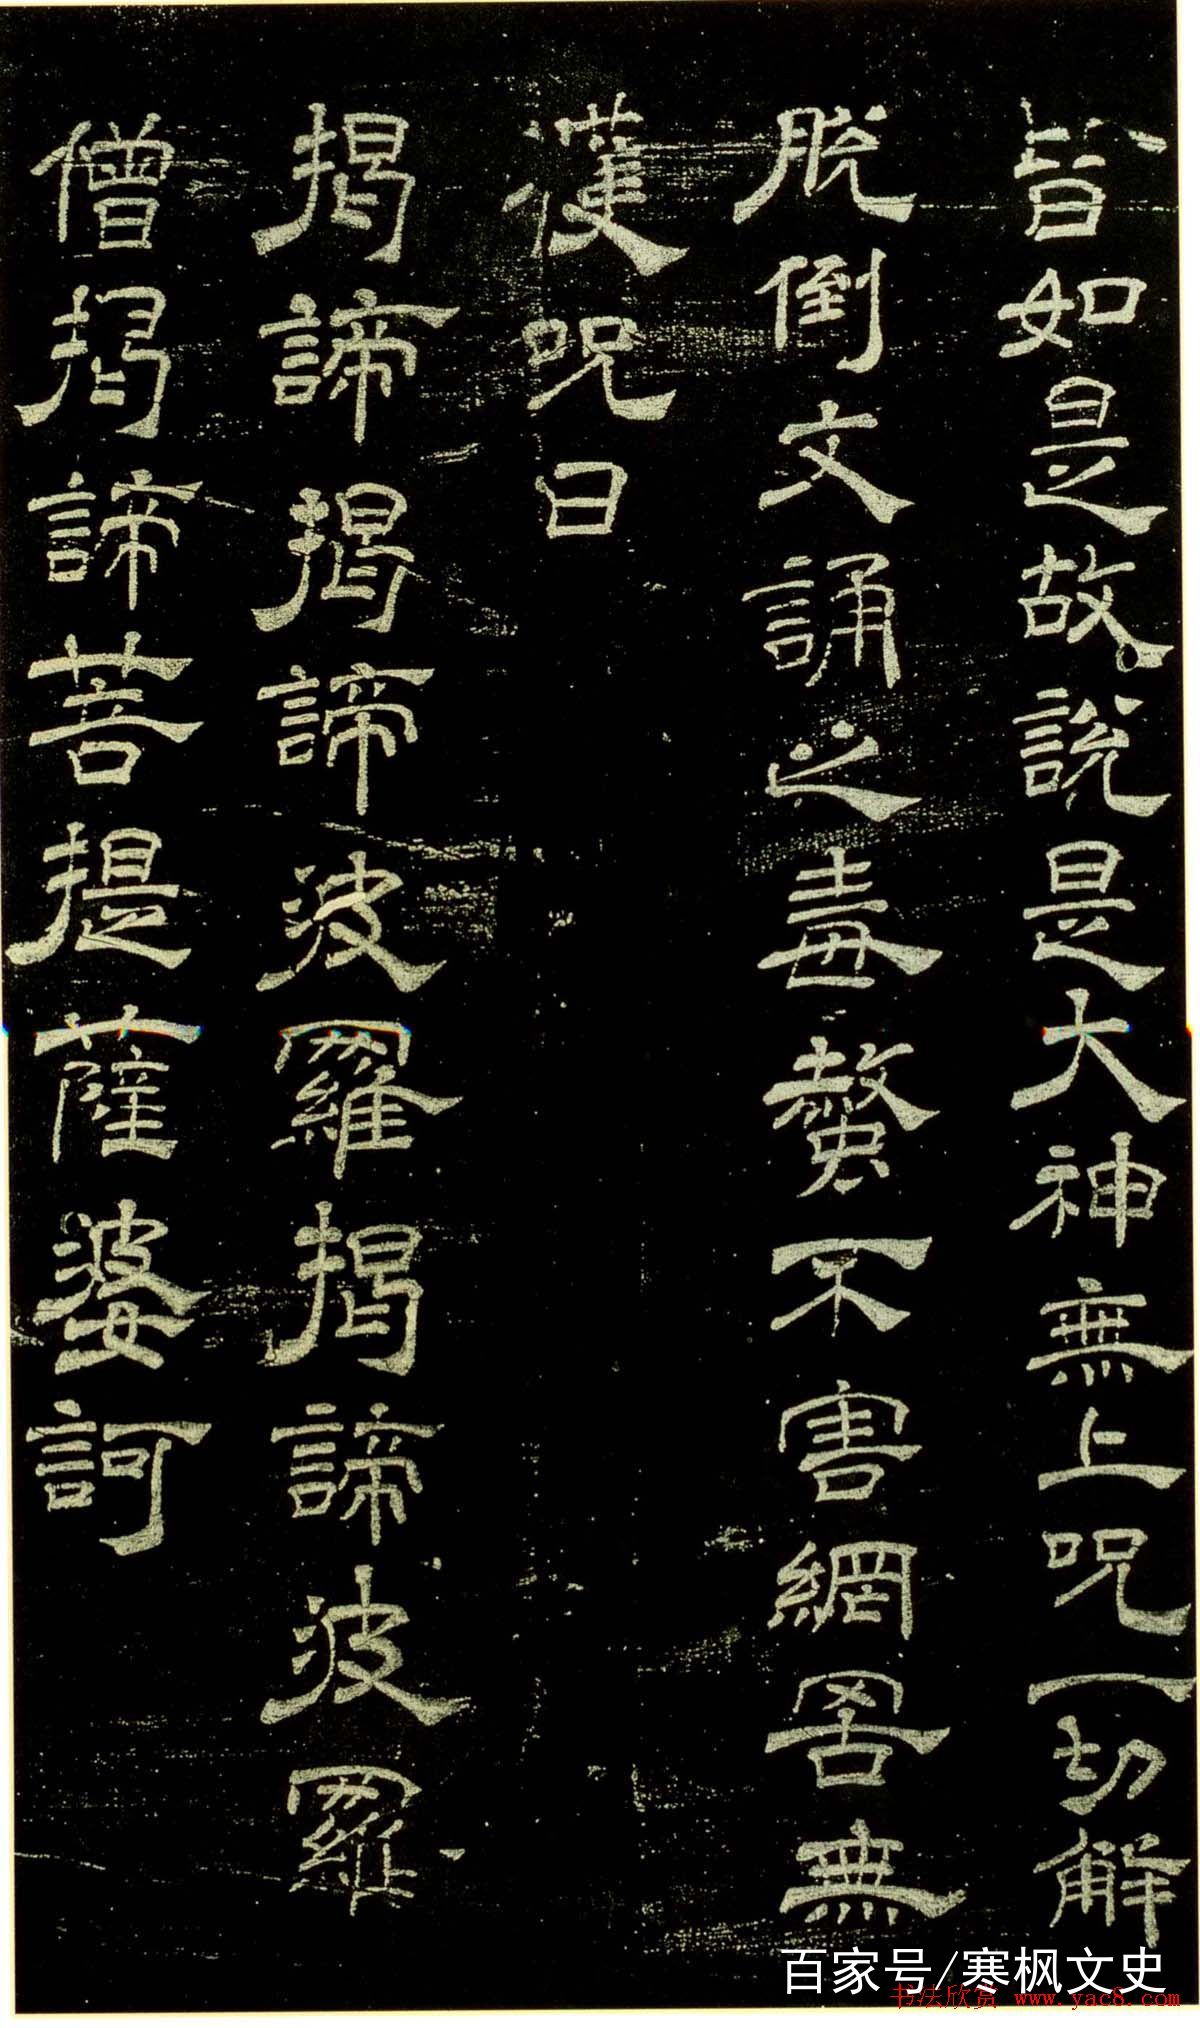 皆如是故說是大神無上呪一切解
脫倒文誦之毒螫不害網罟無
獲呪曰
揭諦揭諦波羅揭諦波羅
僧揭諦菩提薩婆訶
百家号/寒枫文史
书法欣赏 www.yac8.com